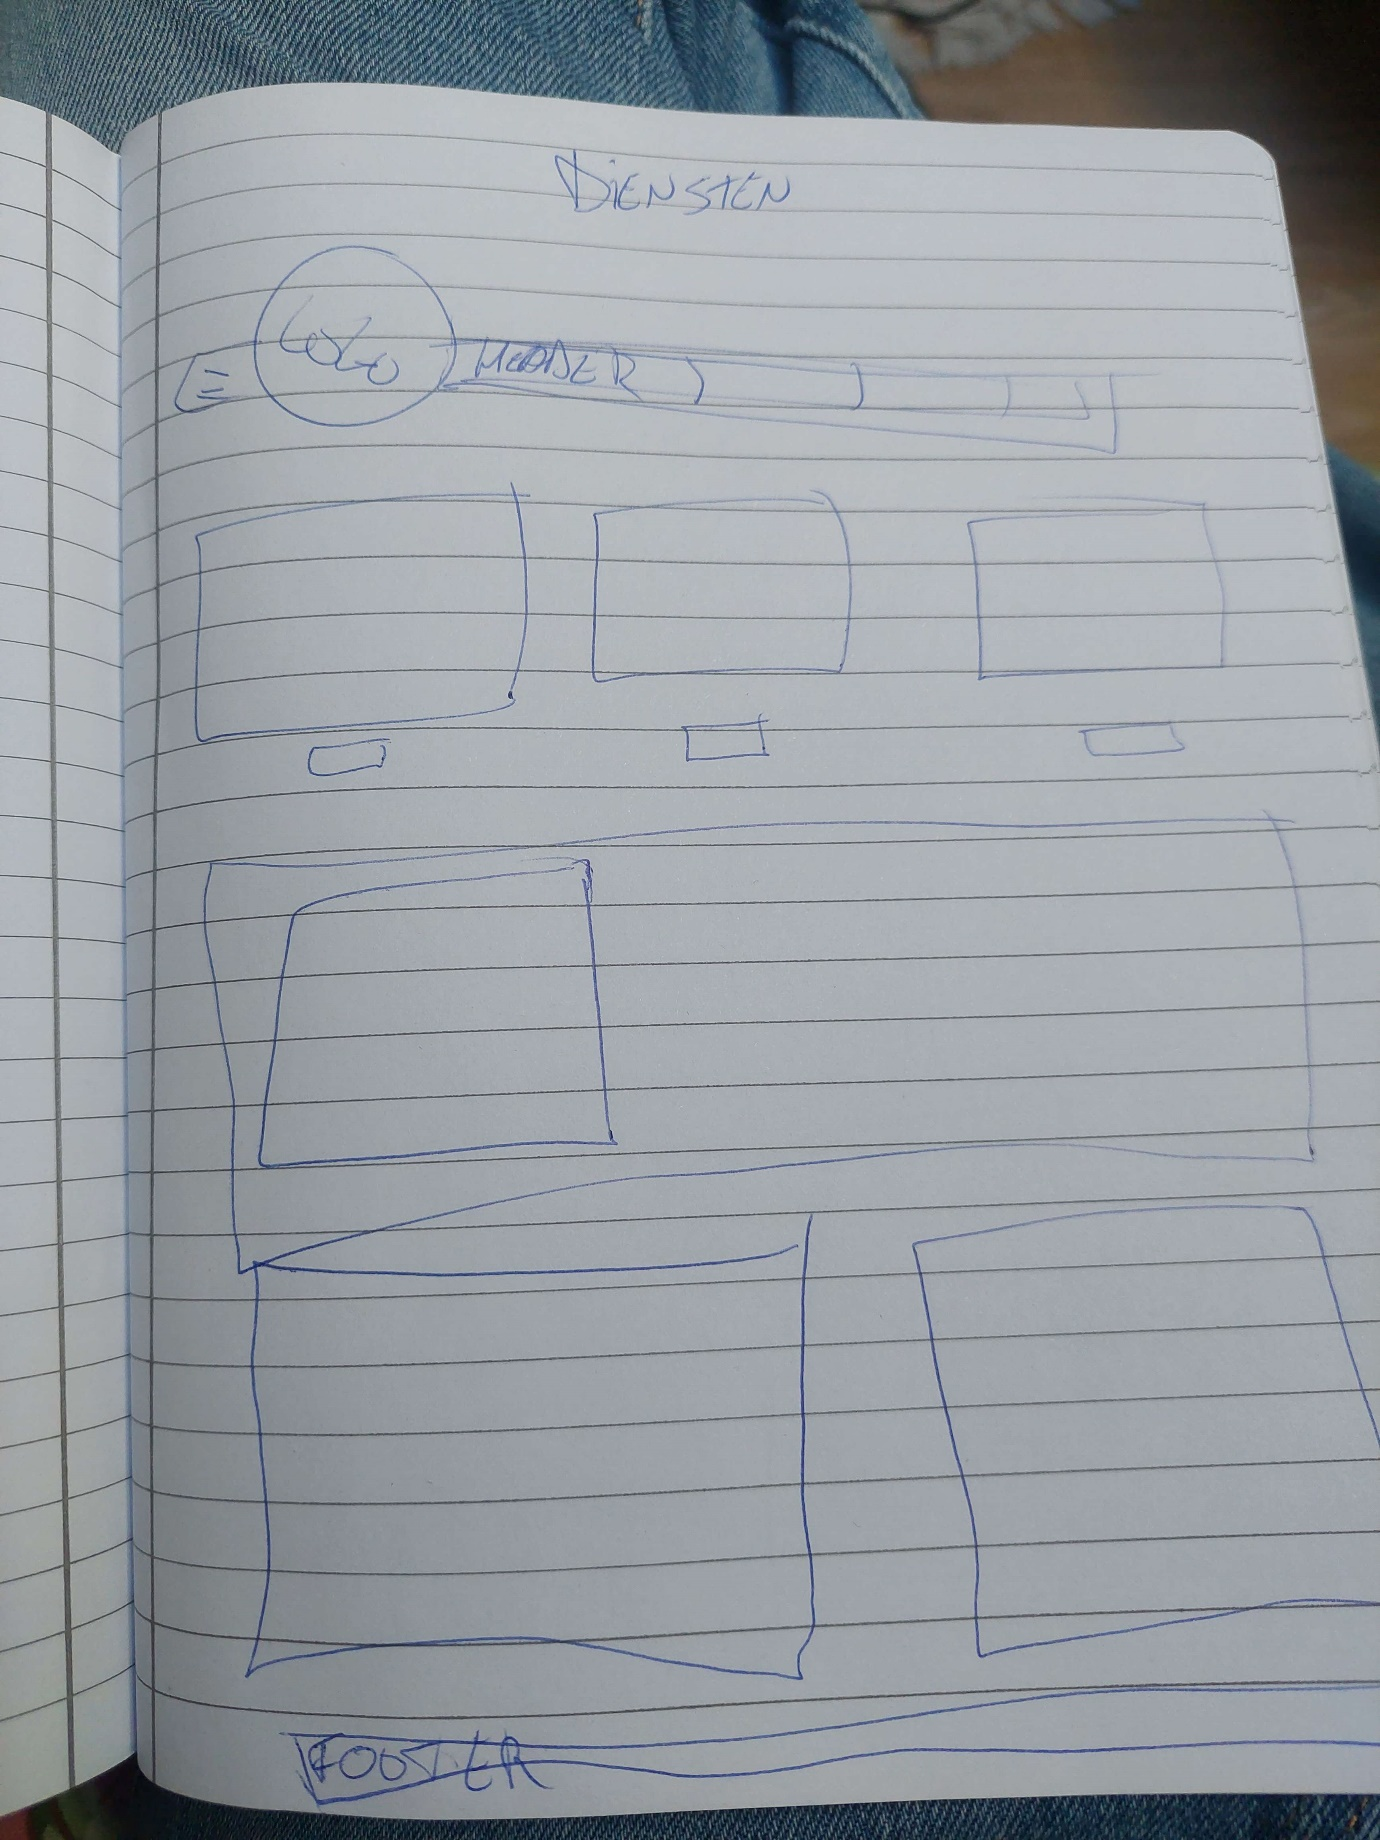 DIENSTEN
LOGO
HEADER
FOOTER